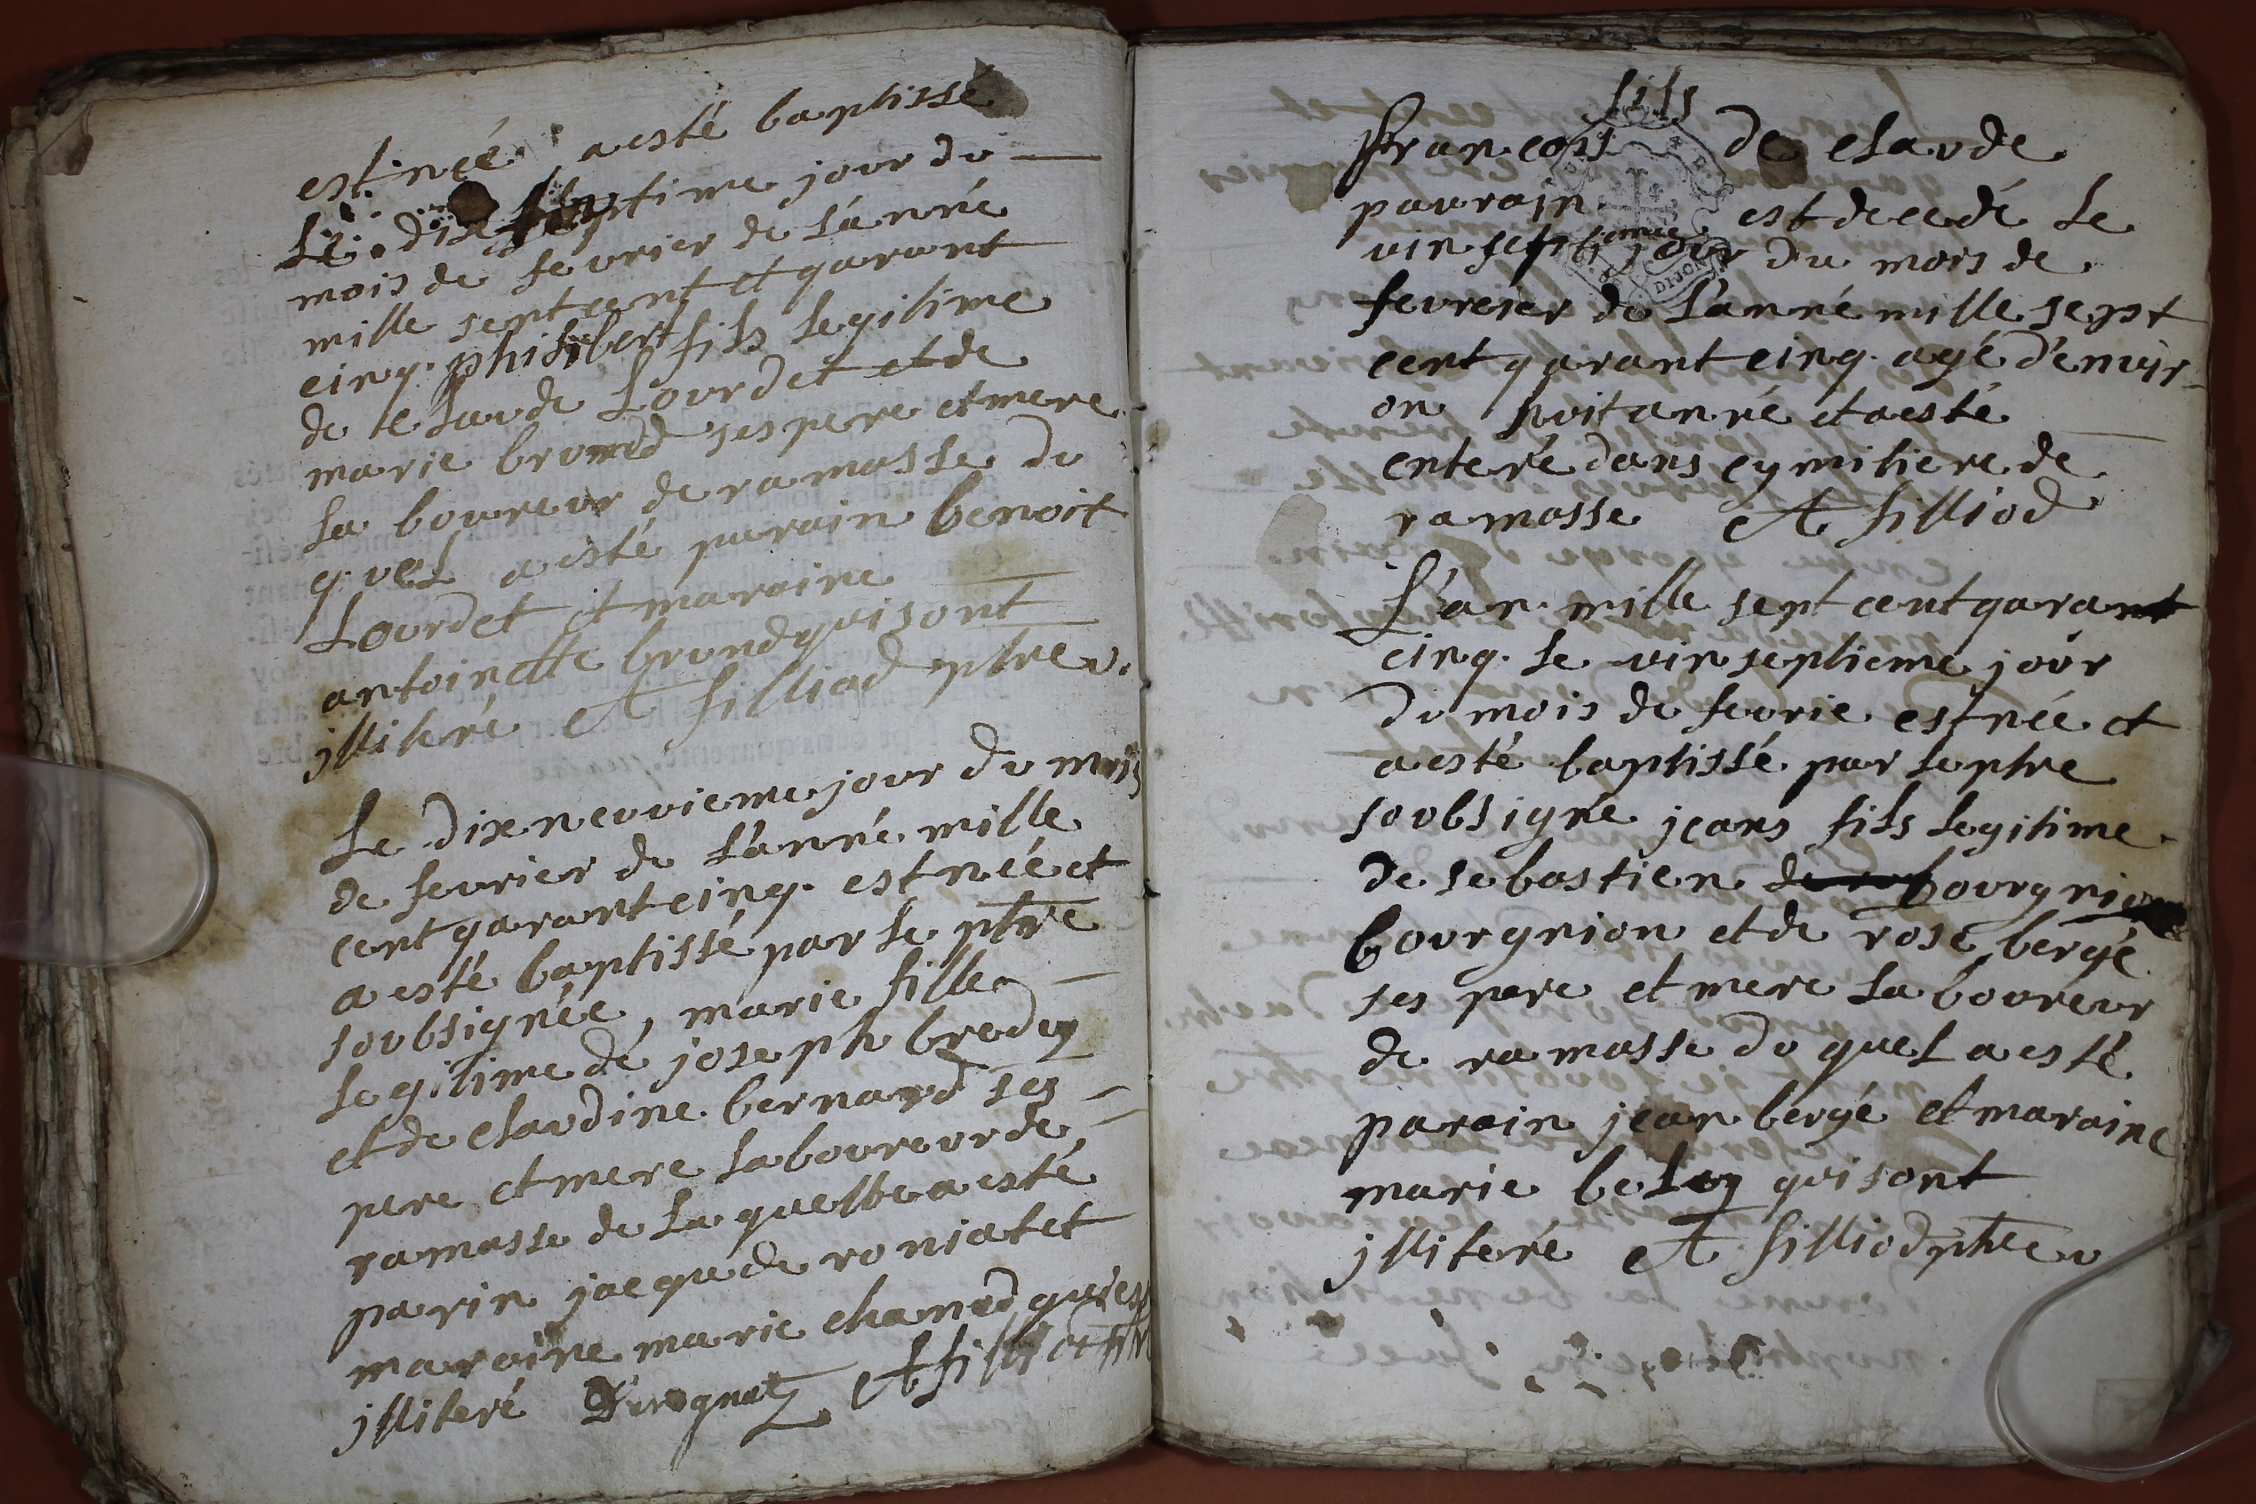 est née a esté baptissé
Le dixseptime jour du
mois de feuvrier de L'année
mille sept cent et garant
cinq. philibert fils Legitime
de Claude Lourdet et de
marie brund ses pere et mere
La boureur de ramasse du
quel a esté parain benoit
Lourdet et maraine
antoinette brund qui sont
jlliteré A filliod ptre v.
Le dixneuvieme jour du mois
de feuvrier de L'année mille
cent garant cinq. est née et
a esté baptissé par Le ptre
soubsignée, marie fille
Legitime de joseph
et de Claudine bernard ses
pere et mere Laboureur de
ramasse de La quelle a esté
parin jacque de roniat et
maraine marie chanod qui
jlliteré A filliod
fils
François de Claude
paurain est decedé Le
vin septieme jour du mois de
feuvrier de L'année mille sept
cent garant cinq. agé d'envir
on huit année et a esté
enteré dans cymitiere de
ramasse A filliod
L'an mille sept cent garant
cinq. Le vin septieme jour
du mois de feuvrie est née et
a esté baptissé par Le ptre
soubsigne jeans fils Legitime
de sebastien bourgnion
bourgnion et de rose bergé
ses pere et mere La boureur
de ramasse du quel a esté
parain jean bergé et maraine
marie beley qui sont
jlliteré A filliod ptre v
DIJON